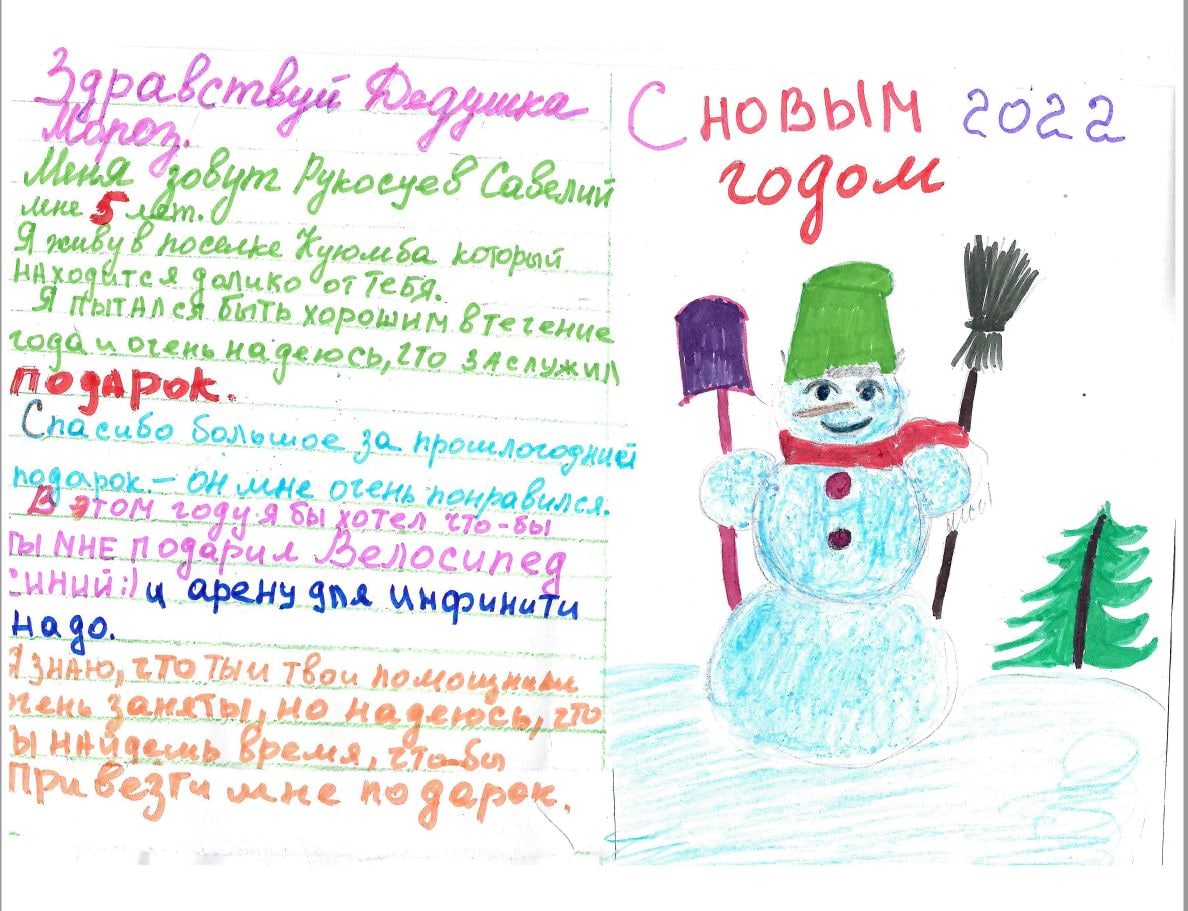 Здравствуй Дедушка
Мороз.
Меня зовут Рукосуев Савелий
мне 5 лет.
Я живу в поселке Куюмба который
находится далико от тебя.
Я пытался быть хорошим в течение
года и очень надеюсь, что заслужил
подарок.
Спасибо большое за прошлогодний
подарок. – он мне очень понравился.
В этом году я бы хотел что-бы
ты мне подарил Велосипед
синий:) и арену для инфинити
надо.
Я знаю, что ты и твои помощники
очень заняты, но надеюсь, что
ты найдешь время, что-бы
привезти мне подарок.
С новым 2022
годом